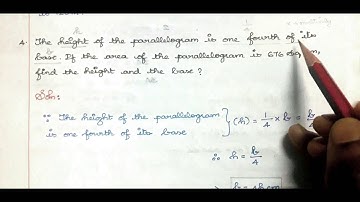 4. The height of the parallelogram is one fourth of its
base. If the area of the parallelogram is 676
find the height and the base?
Soln:
∵ The height of the parallelogram
is one fourth of its base } (h) = 1/4 × b = b/4
∴ h = b/4